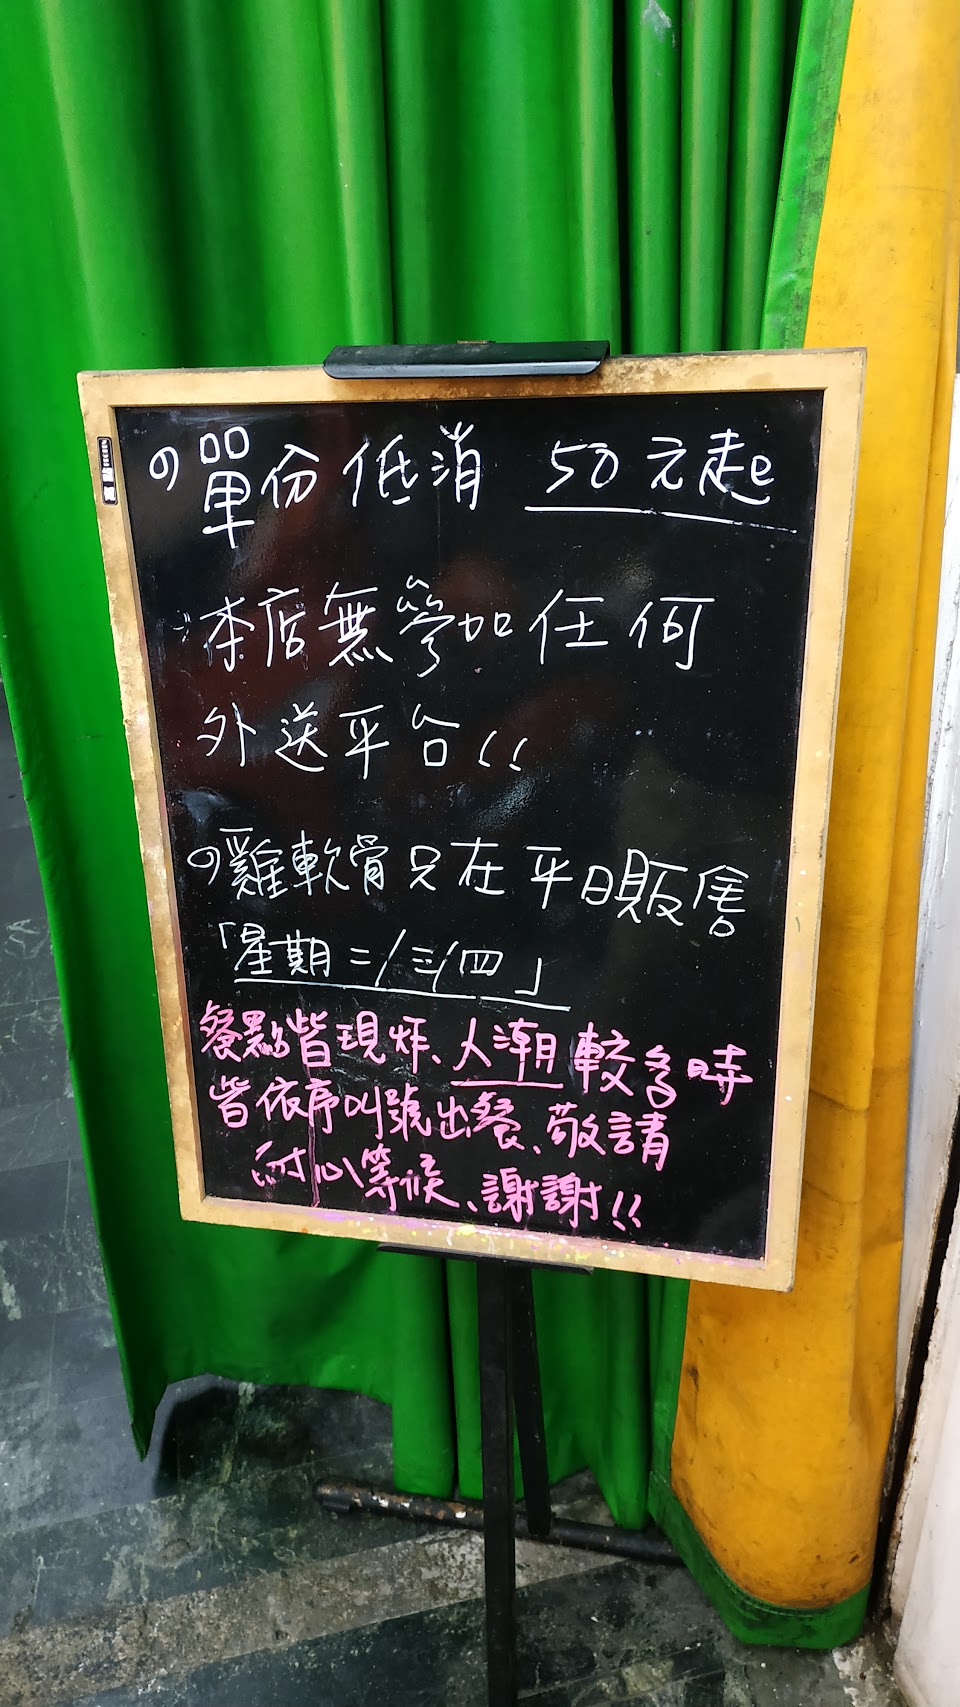 單份低消 50元起
本店無參加任何
外送平台!!
雞軟骨只在平日販售
「星期二/三/四」
餐點皆現炸、人潮較多時
皆依序叫號出餐、敬請
耐心等候、謝謝!!